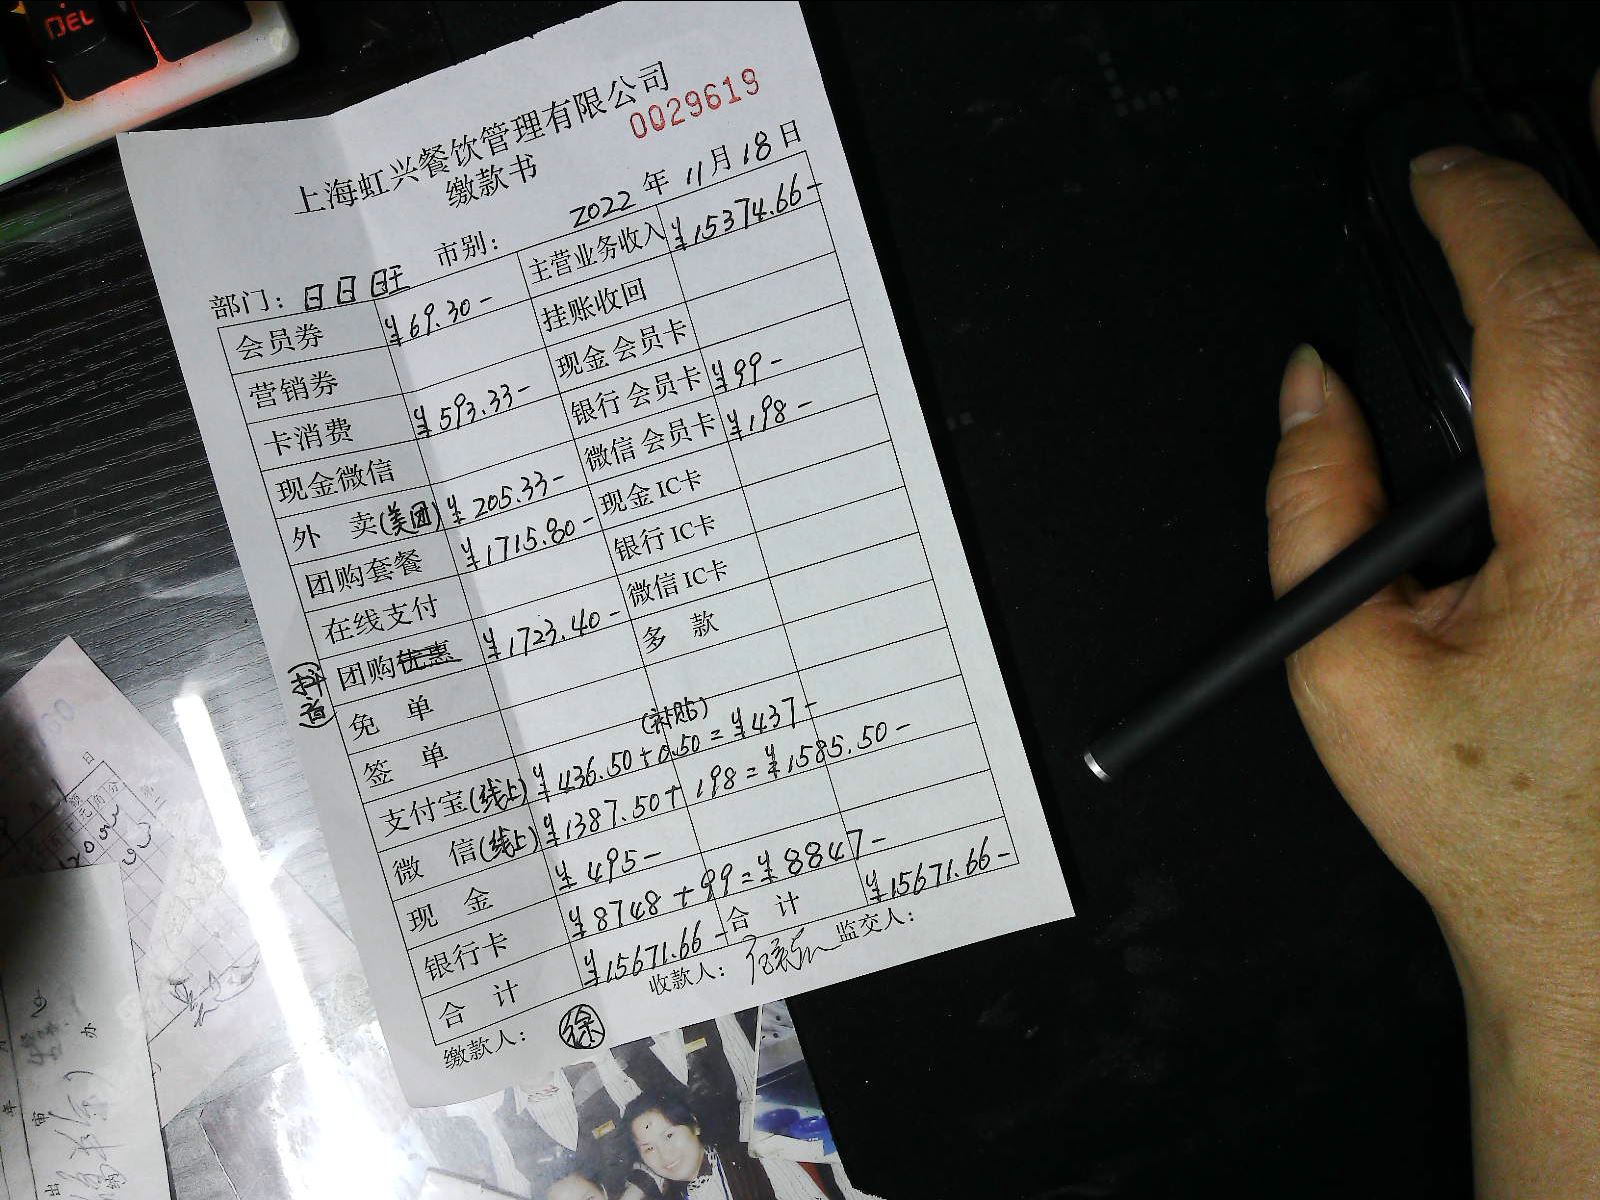 DEL
上海虹兴餐饮管理有限公司
缴款书
0029619
2022 年 11 月 18 日
部门: 日日旺 市别:
会员券 ¥69.30- 主营业务收入 ¥15374.66-
营销券 挂账收回
卡消费 ¥593.33- 现金会员卡
现金微信 银行会员卡 ¥99-
外 卖(美团) ¥205.33- 微信会员卡 ¥198-
团购套餐 ¥1715.80- 现金IC卡
在线支付 银行IC卡
(抖音) 团购优惠 ¥1723.40- 微信IC卡
免 单 多 款
签 单
支付宝(线上) ¥436.50+0.50(补贴)=¥437-
微 信(线上) ¥1387.50+198=¥1585.50-
现 金 ¥495-
银行卡 ¥8748+99=¥8847-
合 计 ¥15671.66- 合 计 ¥15671.66-
缴款人: 徐 收款人: 监交人: